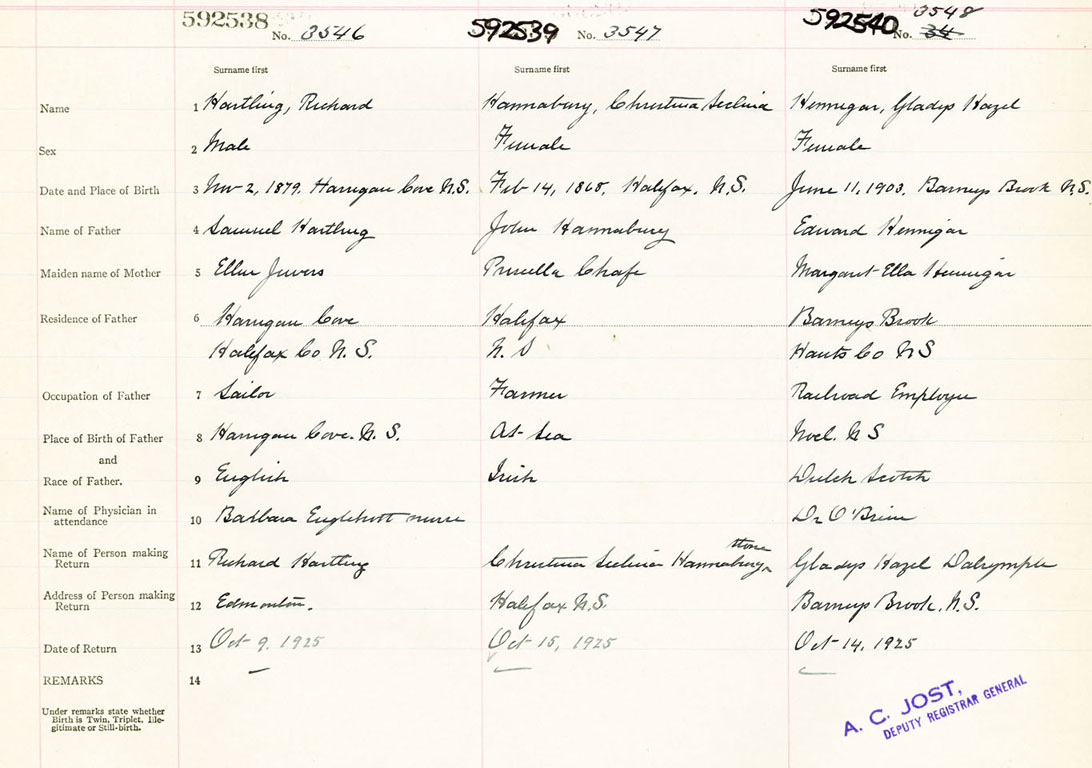 592538 No. 3546 592539 No. 3547 592540 No. 34 3548
Surname first Surname first Surname first
Name 1 Hartling, Richard Hannabury, Christina Seclinia Hennigar, Gladys Hazel
Sex 2 Male Female Female
Date and Place of Birth 3 Nov 2, 1879. Harrigan Cove N.S. Feb 14, 1868, Halifax, N.S. June 11, 1903. Barneys Brook N.S.
Name of Father 4 Samuel Hartling John Hannabury Edward Hennigar
Maiden name of Mother 5 Ellen Jewers Priscilla Chafe Margaret Ella Hennigar
Residence of Father 6 Harrigan Cove Halifax Barneys Brook
Halifax Co N.S. N.S Hants Co N S
Occupation of Father 7 Sailor Farmer Railroad Employee
Place of Birth of Father 8 Harrigan Cove. N.S. At Sea Noel. N S
and
Race of Father. 9 English Irish Dutch Scotch
Name of Physician in
attendance 10 Barbara nurse Dr O'Brien
Name of Person making
Return 11 Richard Hartling Christina Seclinia Hannabury Gladys Hazel Dalrymple
Address of Person making
Return 12 Edmonton. Halifax N.S. Barneys Brook. N.S.
Date of Return 13 Oct 9. 1925 Oct 15, 1925 Oct 14, 1925
REMARKS 14
Under remarks state whether
Birth is Twin, Triplet, Ille-
gitimate or Still-birth.
A. C. JOST,
DEPUTY REGISTRAR GENERAL